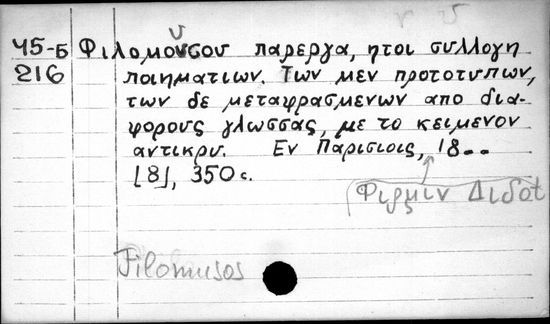 Ч5-Б Φιλομούσου παρεργα, ητοι συλλογη
216 ποιηματιων. Των μεν προτοτυπων,
των δε μεταφρασμενων απο δια-
φορους γλωσσας, με το κειμενον
αντικρυ. Εν Παρισιοις, 18--
[8], 350 с.
Φιρμιν Διδοt
Filomusos